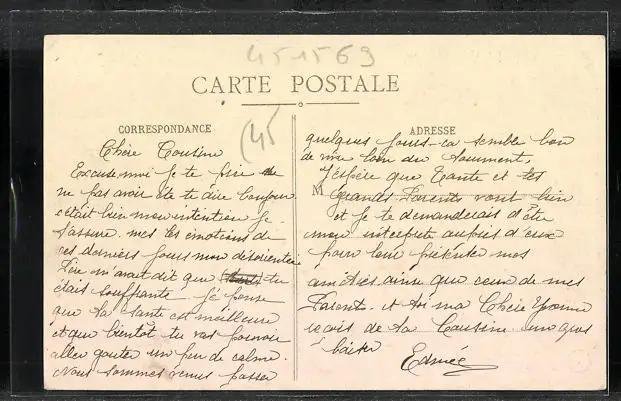 451569
CARTE POSTALE
(45
CORRESPONDANCE
Chère Cousine
Excuse moi je te prie de
ne pas avoir été te dire bonjour
c'était bien mon intention je
t'assure. mes les émotions de
ces derniers jours m'on désorientée
m'avait dit que tu
étais souffrante. Je pense
que ta santé est meilleure
et que bientôt tu vas pouvoir
aller gouter un peu de calme.
Nous sommes venus passer
ADRESSE
quelques jours - ca semble bon
de vivre loin du
J'espère que Tante et tes
M
Grands Parents vont bien
et je te demanderais d'être
mon interprète auprès d'eux
pour leur présenter mes
amitiés ainsi que ceux de mes
Parents. et toi ma Chère Yvonne
reçois de ta Cousine un gros
baiser
Edmée